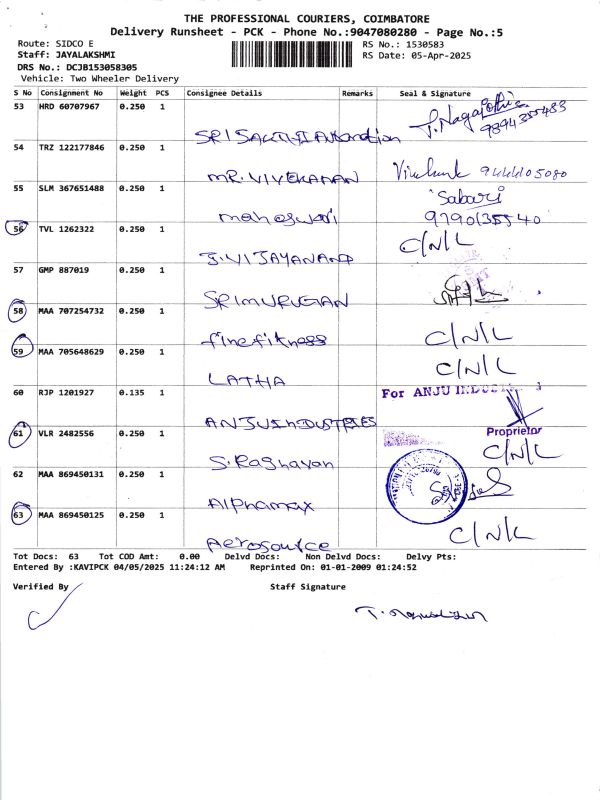 THE PROFESSIONAL COURIERS, COIMBATORE
Delivery Runsheet - PCK - Phone No.:9047080280 - Page No.:5
Route: SIDCO E
RS No.: 1530583
Staff: JAYALAKSHMI
RS Date: 05-Apr-2025
DRS No.: DCJB153058305
Vehicle: Two Wheeler Delivery
S No Consignment No Weight PCS Consignee Details Remarks Seal & Signature
53 HRD 60707967 0.250 1
SRI SAKTHI Automation
9894355483
54 TRZ 122177846 0.250 1
MR. VIVEKANAN
9444105080
55 SLM 367651488 0.250 1
maheswari
Sabari
9790135540
56 TVL 1262322 0.250 1
J. VIJAYANAND
C/N/L
57 GMP 887019 0.250 1
SRI MURUGAN
58 MAA 707254732 0.250 1
fine fitness
C/N/L
59 MAA 705648629 0.250 1
LATHA
C/N/L
60 RJP 1201927 0.135 1
ANJU INDUSTRIES
For ANJU
Proprietor
61 VLR 2482556 0.250 1
S. Raghavan
C/N/L
62 MAA 869450131 0.250 1
Alphamax
63 MAA 869450125 0.250 1
Aerosource
C/N/L
Tot Docs: 63 Tot COD Amt: 0.00 Delvd Docs: Non Delvd Docs: Delvy Pts:
Entered By :KAVIPCK 04/05/2025 11:24:12 AM Reprinted On: 01-01-2009 01:24:52
Verified By Staff Signature